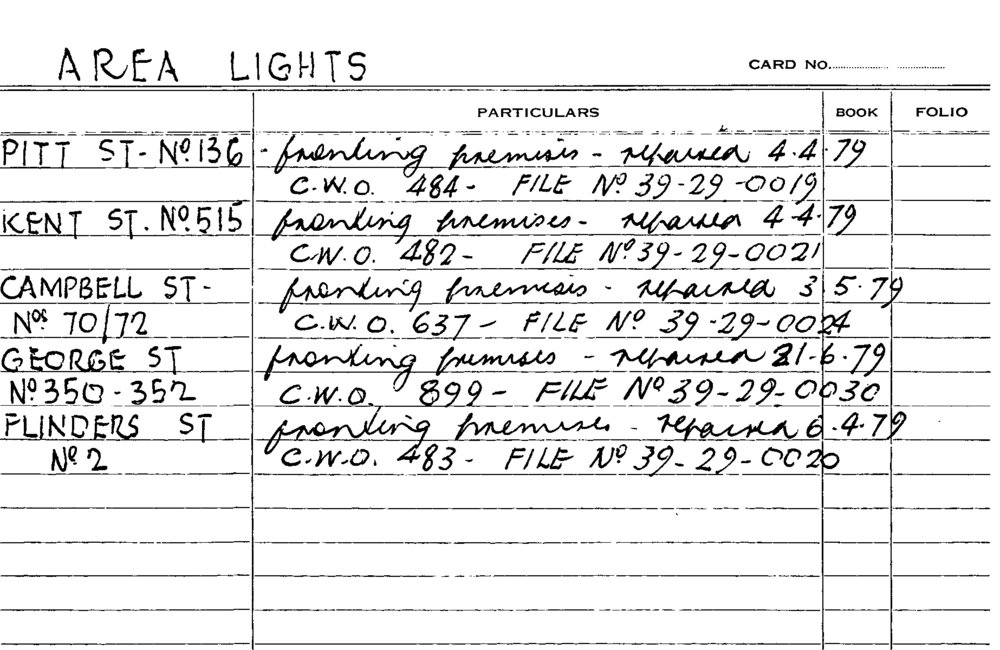 AREA LIGHTS CARD No.
PARTICULARS BOOK FOLIO
PITT ST- Nº 136 - fronting premises - repaired 4.4.79
C.W.O. 484 - FILE Nº 39-29-0019
KENT ST. Nº 515 fronting premises - repaired 4-4.79
C.W.O. 482 - FILE Nº 39-29-0021
CAMPBELL ST - fronting premises - repaired 3.5.79
Nos 70/72 C.W.O. 637 - FILE Nº 39-29-0024
GEORGE ST fronting premises - repaired 21.6.79
Nº 350-352 C.W.O. 899 - FILE Nº 39-29-0030
FLINDERS ST fronting premises - repaired 6.4.79
Nº 2 C.W.O. 483 - FILE Nº 39-29-0020